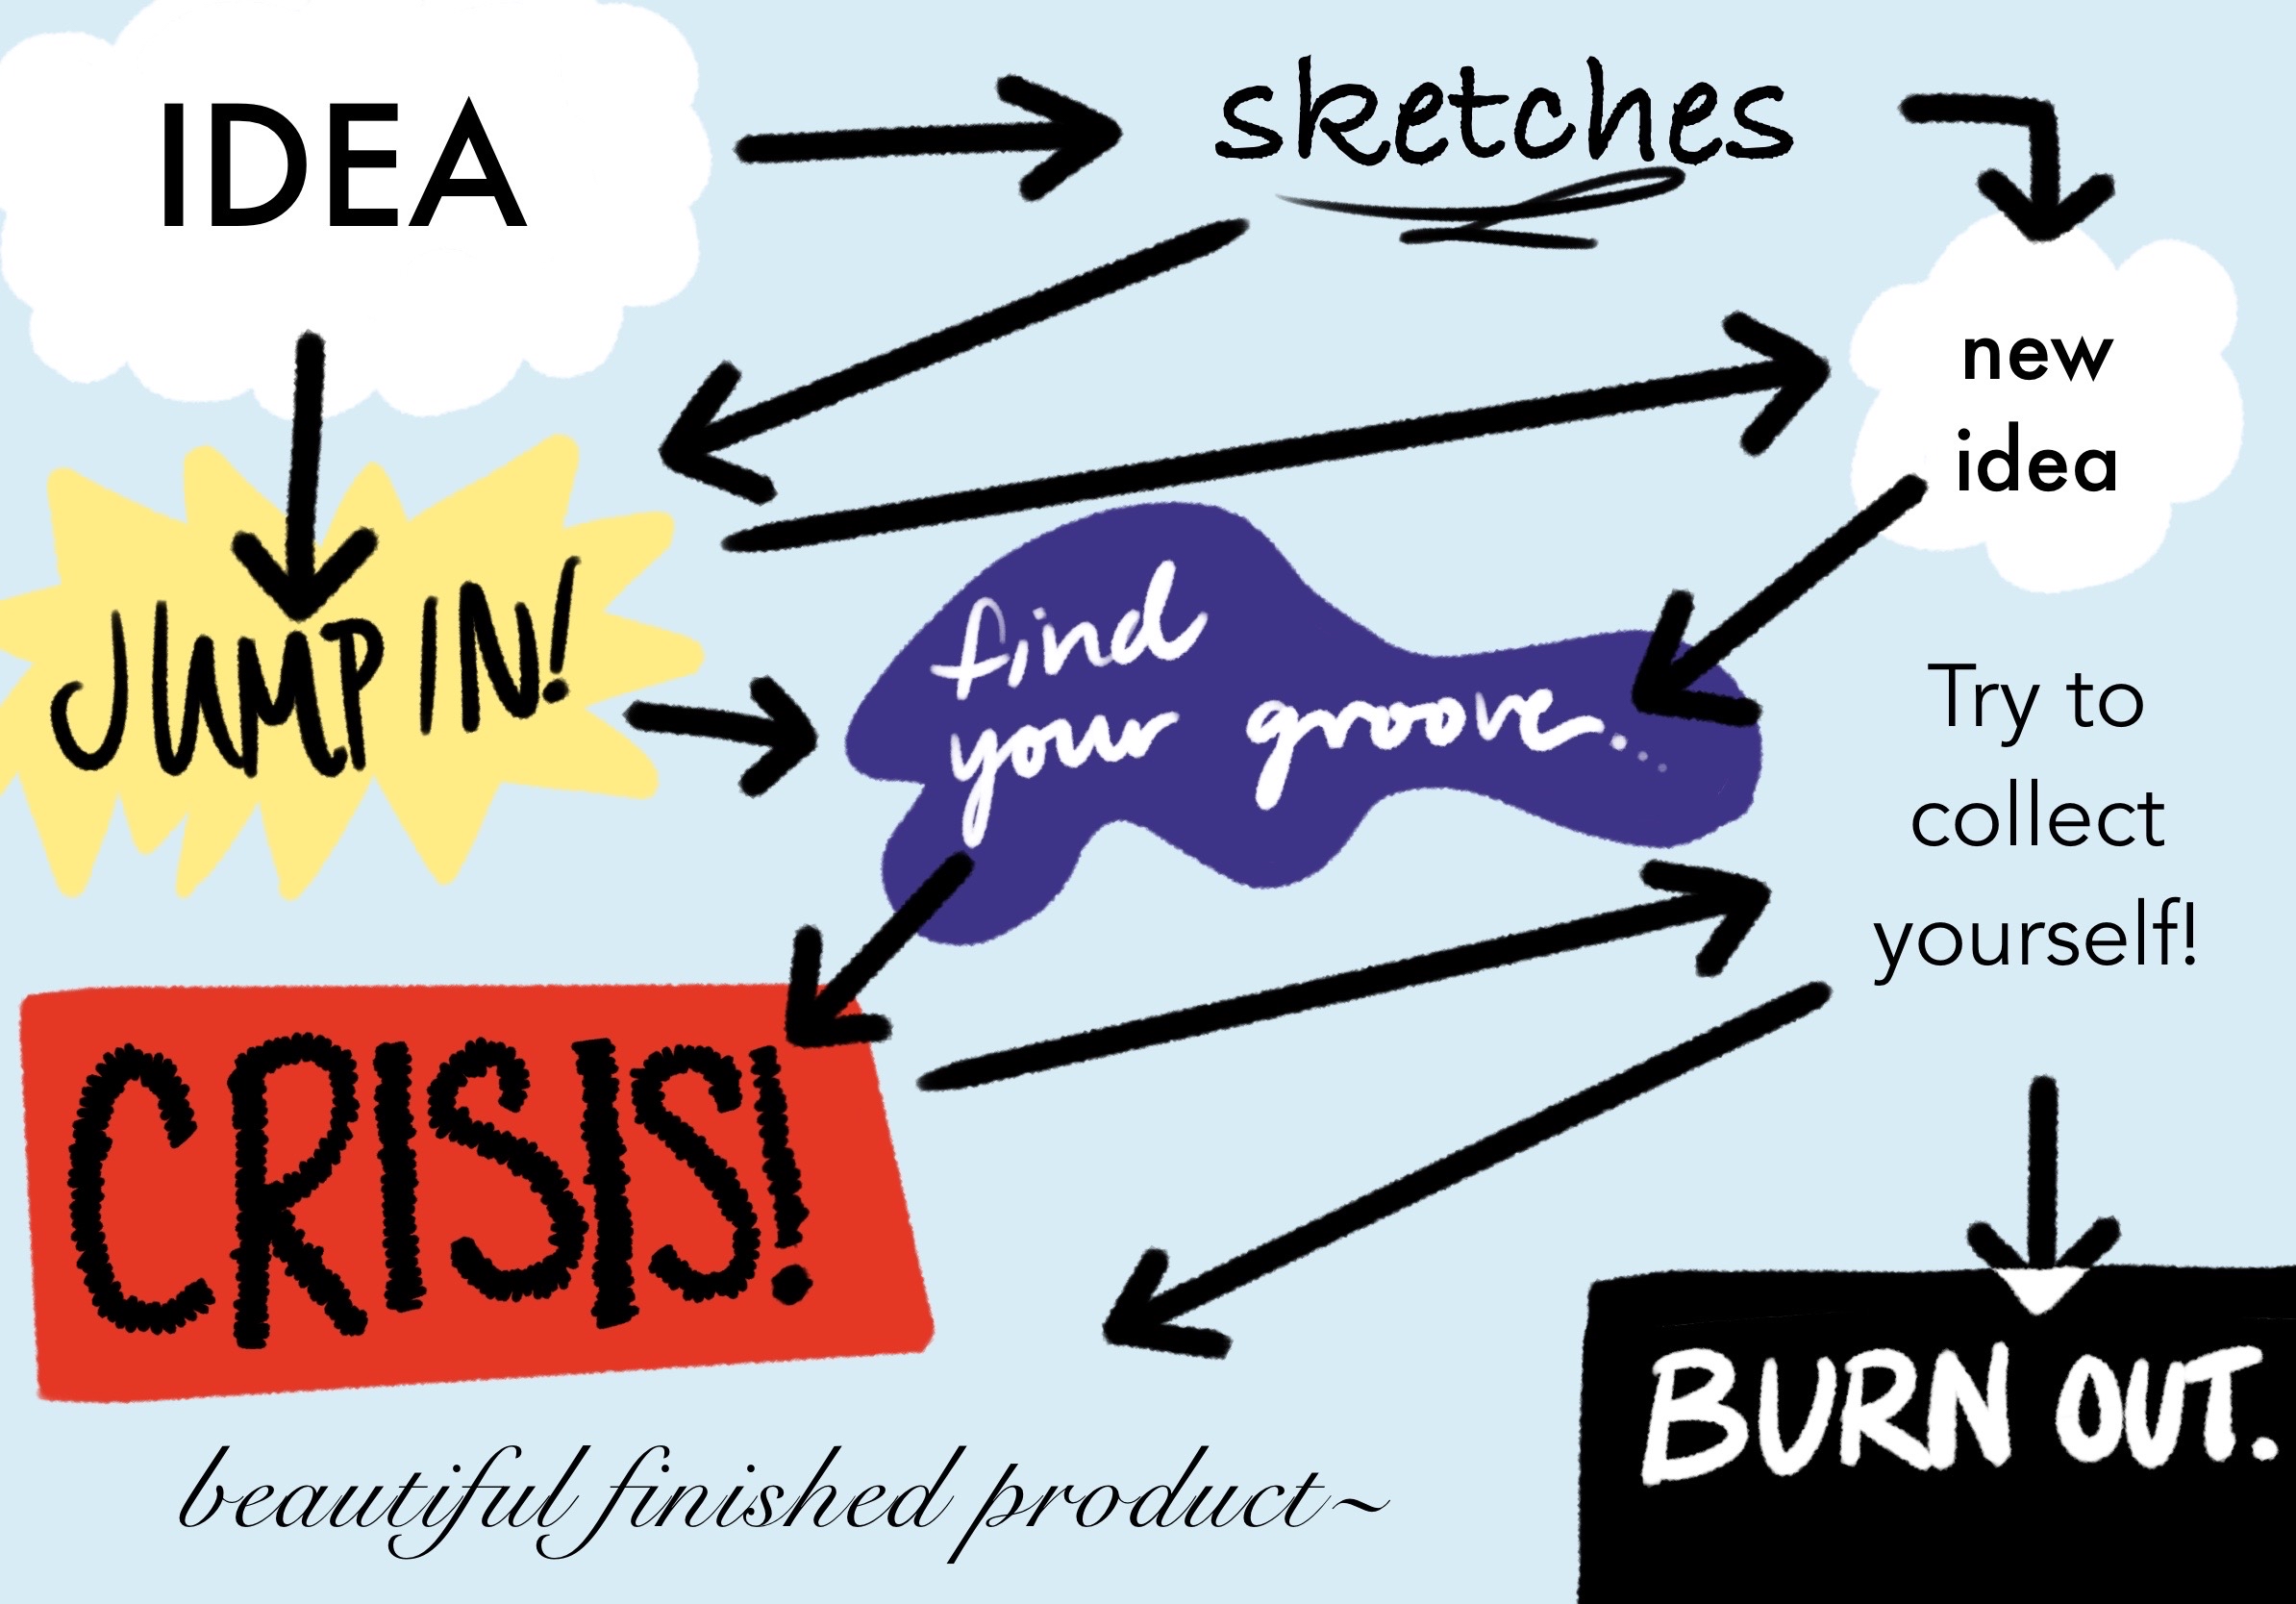 IDEA
sketches
new
idea
JUMP IN!
find
your groove...
Try to
collect
yourself!
CRISIS!
BURN OUT.
beautiful finished product~